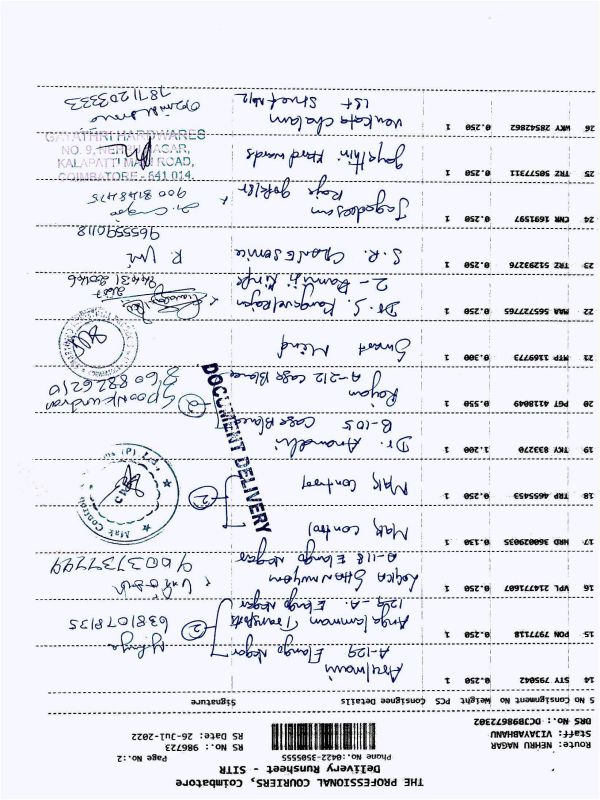 THE PROFESSIONAL COURIERS, Coimbatore
Delivery Runsheet - SITR
Phone No.:0422-3505555
Page No.:2
Route: NEHRU NAGAR
Staff: VIJAYABHANU
DRS No.: DCJB09672302
RS No.: 986723
RS Date: 26-Jul-2022
S No Consignment No Weight PCS Consignee Details Signature
14 STY 795042 0.250 1
A-129 Elango Nagar
15 PON 7977118 0.250 1 Angalamman Transports 6381078135
129-A. Elango Nagar
16 VPL 214771607 0.250 1 9003737299
A-118 Elango Nagar
17 HRD 360029035 0.130 1 Mak Control
18 TRP 4655453 0.250 1 Mak Control
2
Mak Controls
19 TKY 833270 1.200 1 Dr. Anandhi
B-105 Casa Blanca
20 PGT 4118049 0.550 1 Rajan
A-212 Casa Blanca
2
8608826210
DOCUMENT DELIVERY
21 MTP 1169773 0.300 1 Smart Mind
22 MAA 565727765 0.250 1 Dr. S.
23 TRZ 51293276 0.250 1 S. R. Crane Service
9655590118
24 CNN 1691597 0.250 1 Jagadeesan
25 TRZ 50577311 0.250 1 Gayathri Hardwares
GAYATHRI HARDWARES
NO. 9, NEHRU NAGAR,
KALAPATTI MAIN ROAD,
COIMBATORE - 641 014.
26 WKY 28542862 0.250 1 Venkatachalam
1st Street
7871203333